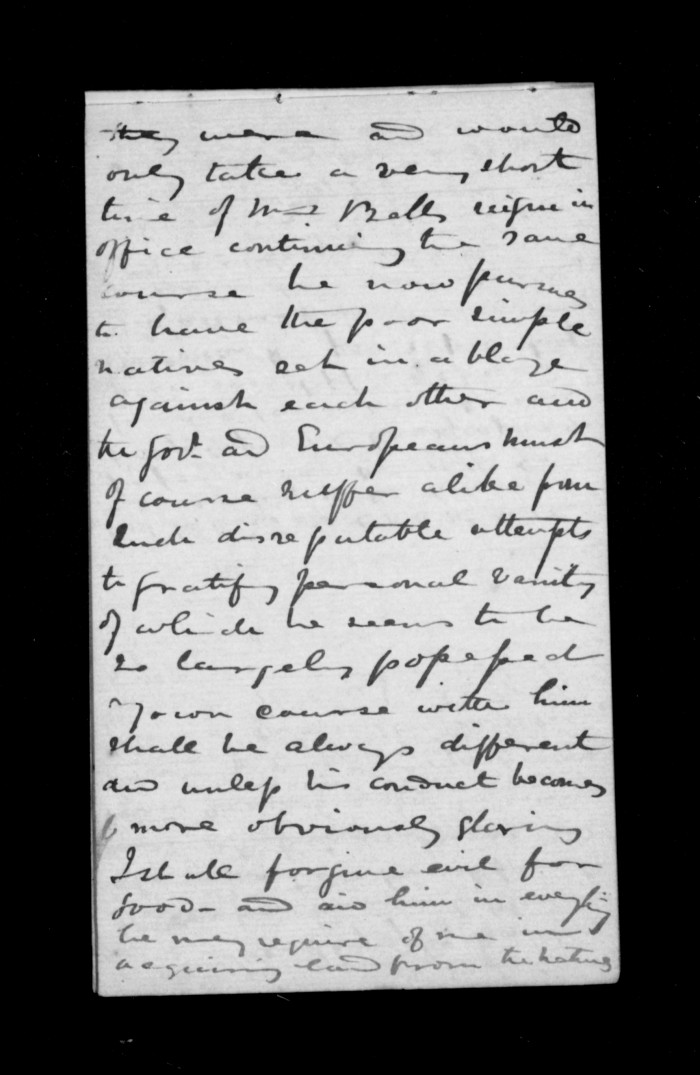 they were and would
only take a very short
time of Mr Bells reign in
office continuing the same
course he now pursues
to have the poor simple
natives set in a blaze
against each other and
the Govt and Europeans must
of course suffer alike from
such disreputable attempts
to gratify personal vanity
of which he seems to be
so largely possessed
My own course with him
shall be always different
and unless his conduct becomes
more obviously glaring
I shall forgive evil for
good - and aid him in everything
he may require of me in
acquiring land from the natives